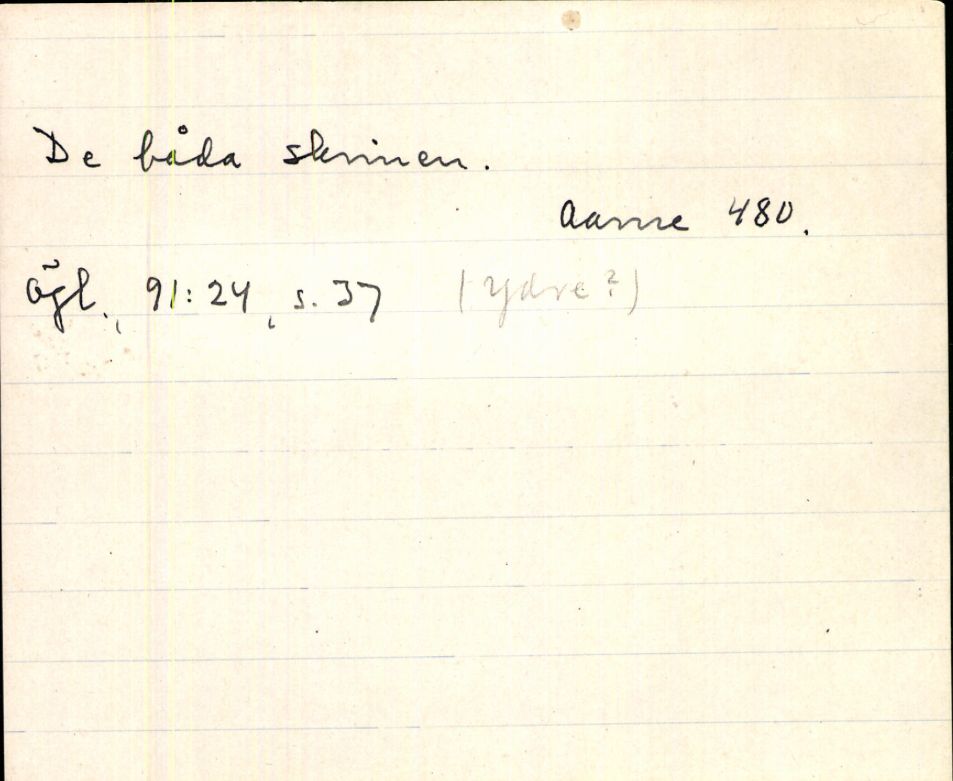 De båda skrinen.
Aarne 480.
Ögl., 91:24, s. 37 (Ydre?)